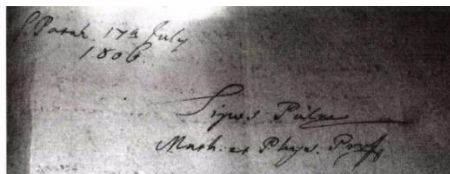 S. Patak. 17a July
1806.
Sipos Pál mk
Math. et Phys. Prof.